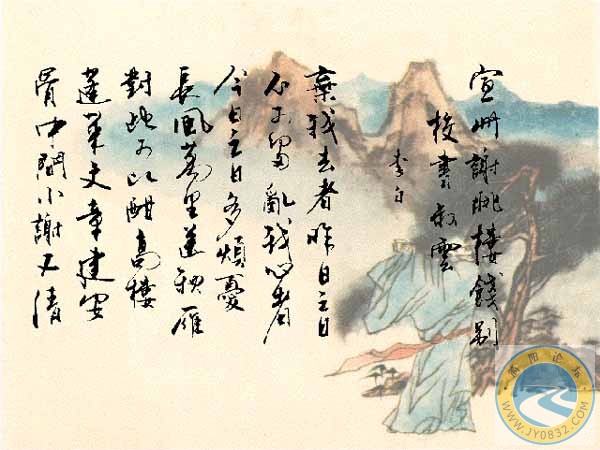 宣州謝朓樓餞別
校書叔雲
李白
棄我去者昨日之日
不可留亂我心者
今日之日多煩憂
長風萬里送秋雁
對此可以酣高樓
蓬萊文章建安
骨中間小謝又清
简阳论坛
WWW.JY0832.COM